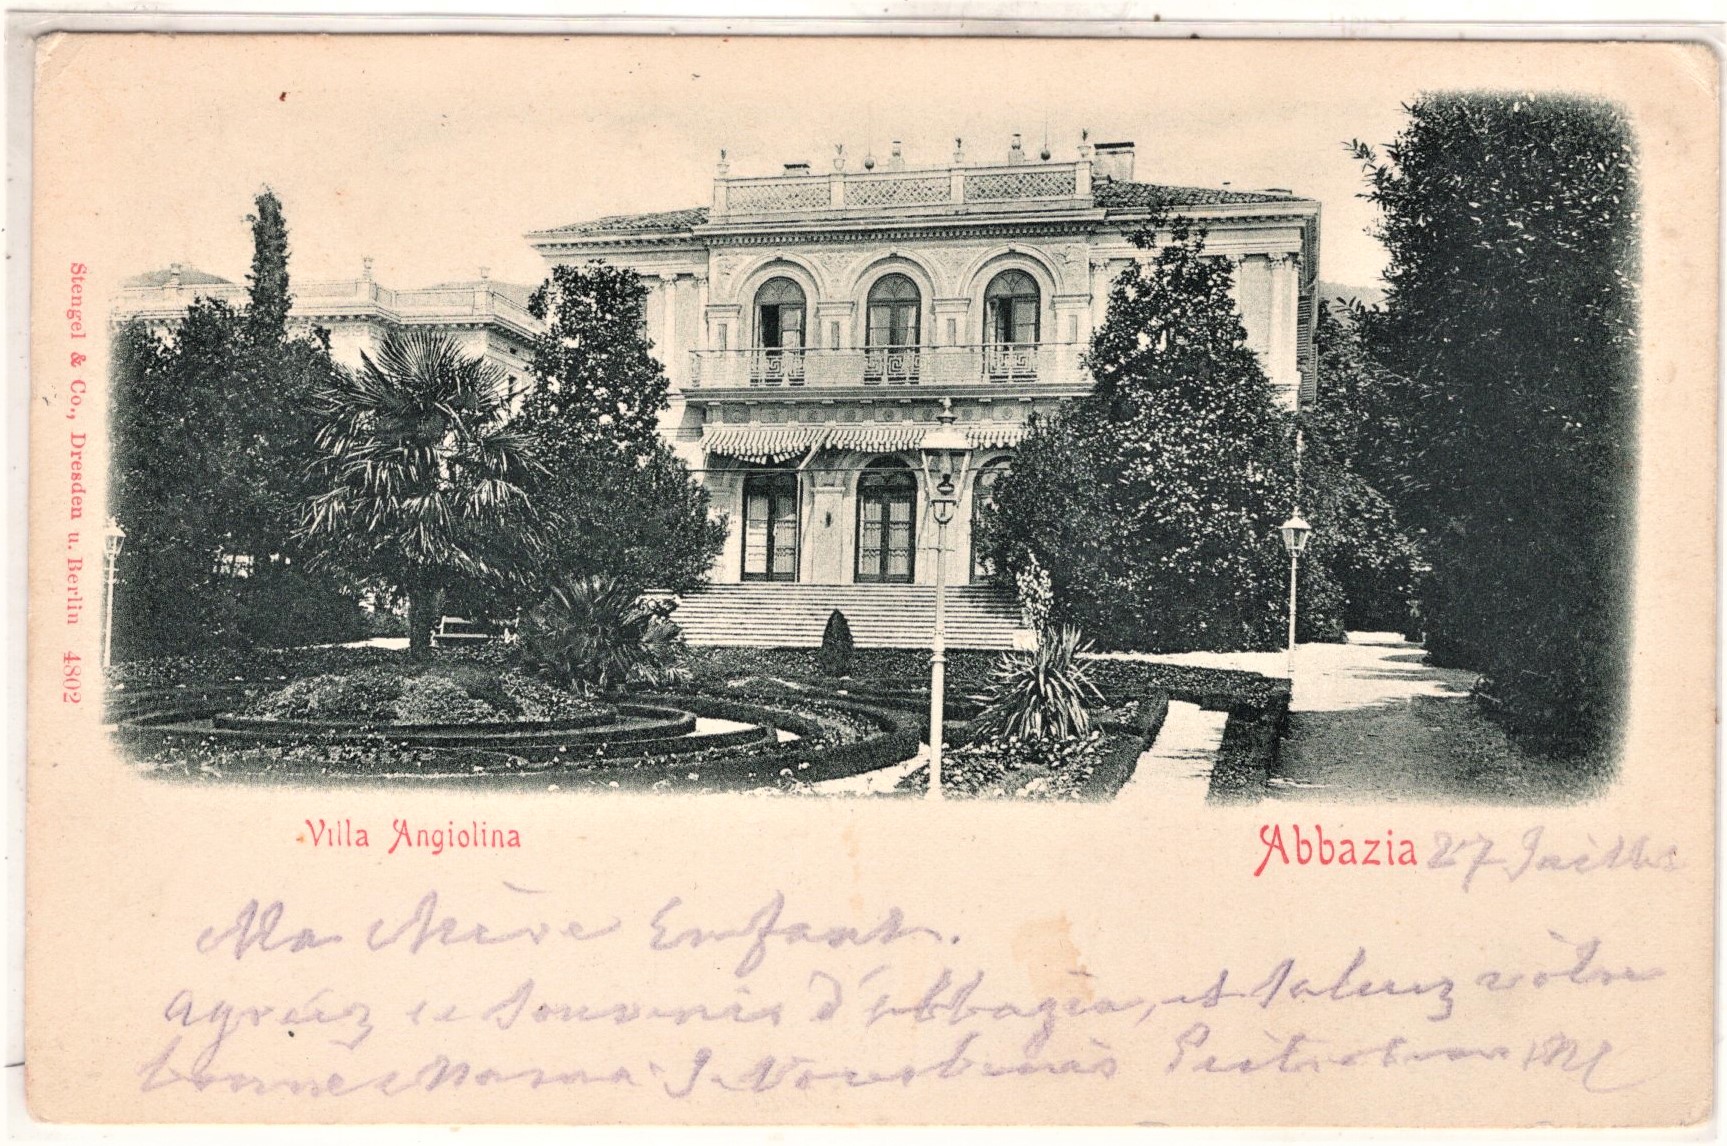 Stengel & Co., Dresden u. Berlin 4802
Villa Angiolina
Abbazia 27 Juillet
Ma Chère Enfant.
Agréez ce Souvenir d'Abbazia, et saluez vôtre
bonne Maman